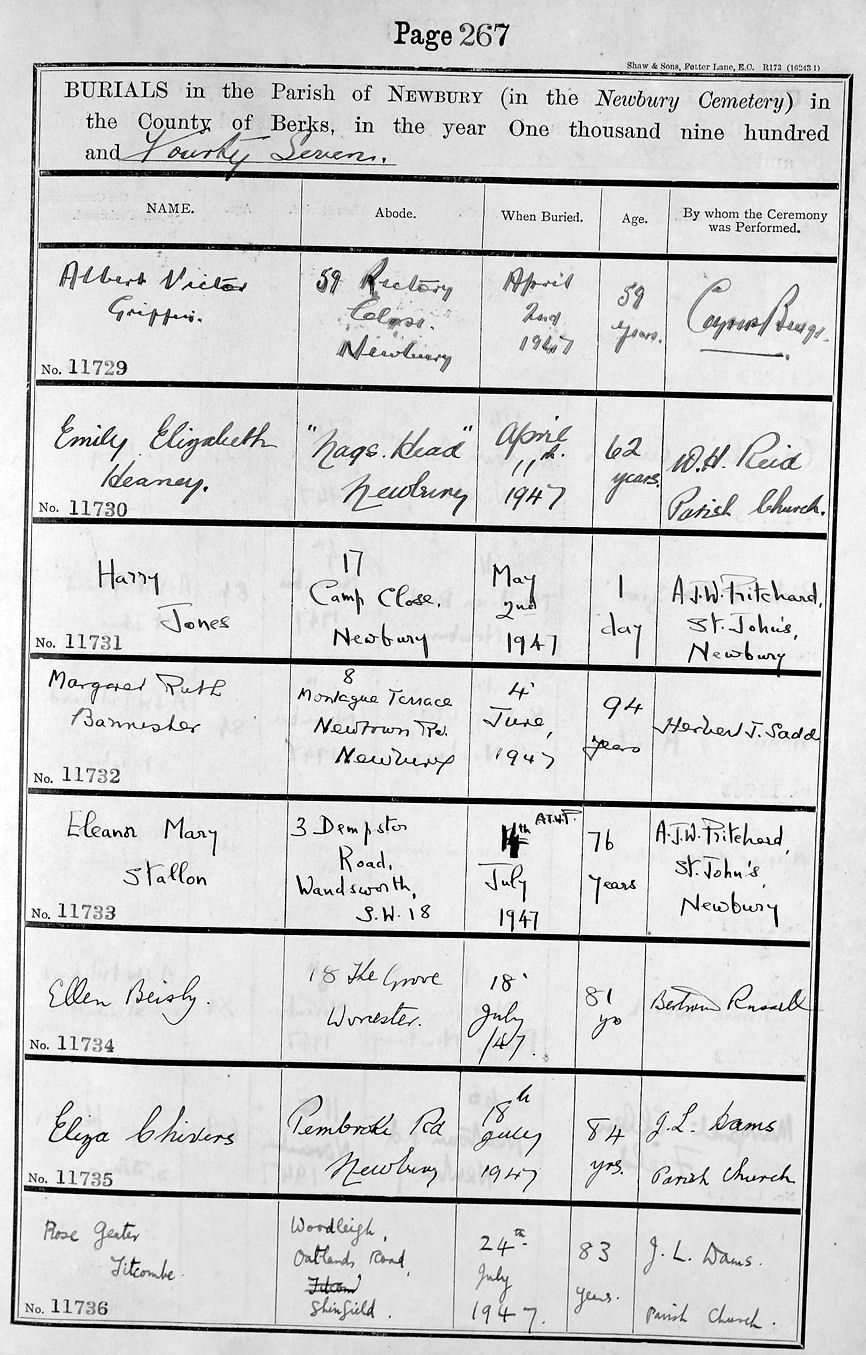 Page 267
Shaw & Sons, Fetter Lane, E.C. R173 (16243 1)
BURIALS in the Parish of NEWBURY (in the Newbury Cemetery) in
the County of Berks, in the year One thousand nine hundred
and Fourty Seven.
NAME.
Abode.
When Buried.
Age.
By whom the Ceremony
was Performed.
Albert Victor
Griffin.
No. 11729
59 Rectory
Close.
Newbury
April
2nd
1947
59
years.
No. 11730
Emily Elizabeth
Heaney.
"Nags. Head"
Newbury
April
11th.
1947
62
years.
W.H. Reid
Parish Church.
Harry
Jones
No. 11731
17
Camp Close,
Newbury
May
2nd
1947
1
day
A.J.W. Pritchard,
St. John's,
Newbury
Margaret Ruth
Bannister
No. 11732
8
Montague Terrace
Newtown Rd.
Newbury
4
June,
1947
94
years
Herbert J. Sadd
Eleanor Mary
Stallon
No. 11733
3 Dempster
Road,
Wandsworth,
S.W. 18
A.J.W.P.
July
1947
76
years
A.J.W. Pritchard,
St. John's,
Newbury
Ellen Beisly.
No. 11734
18 The Grove
Worcester.
18
July
/47.
81
yo
Bertram Russell
Eliza Chivers
No. 11735
Pembroke Rd
Newbury
18th
July
1947
84
yrs.
J.L. Dams
Parish Church
Rose Geater
Titcombe
No. 11736
Woodleigh,
Oatlands Road,
Shinfield.
24th
July
1947.
83
years.
J. L. Dams.
Parish Church.